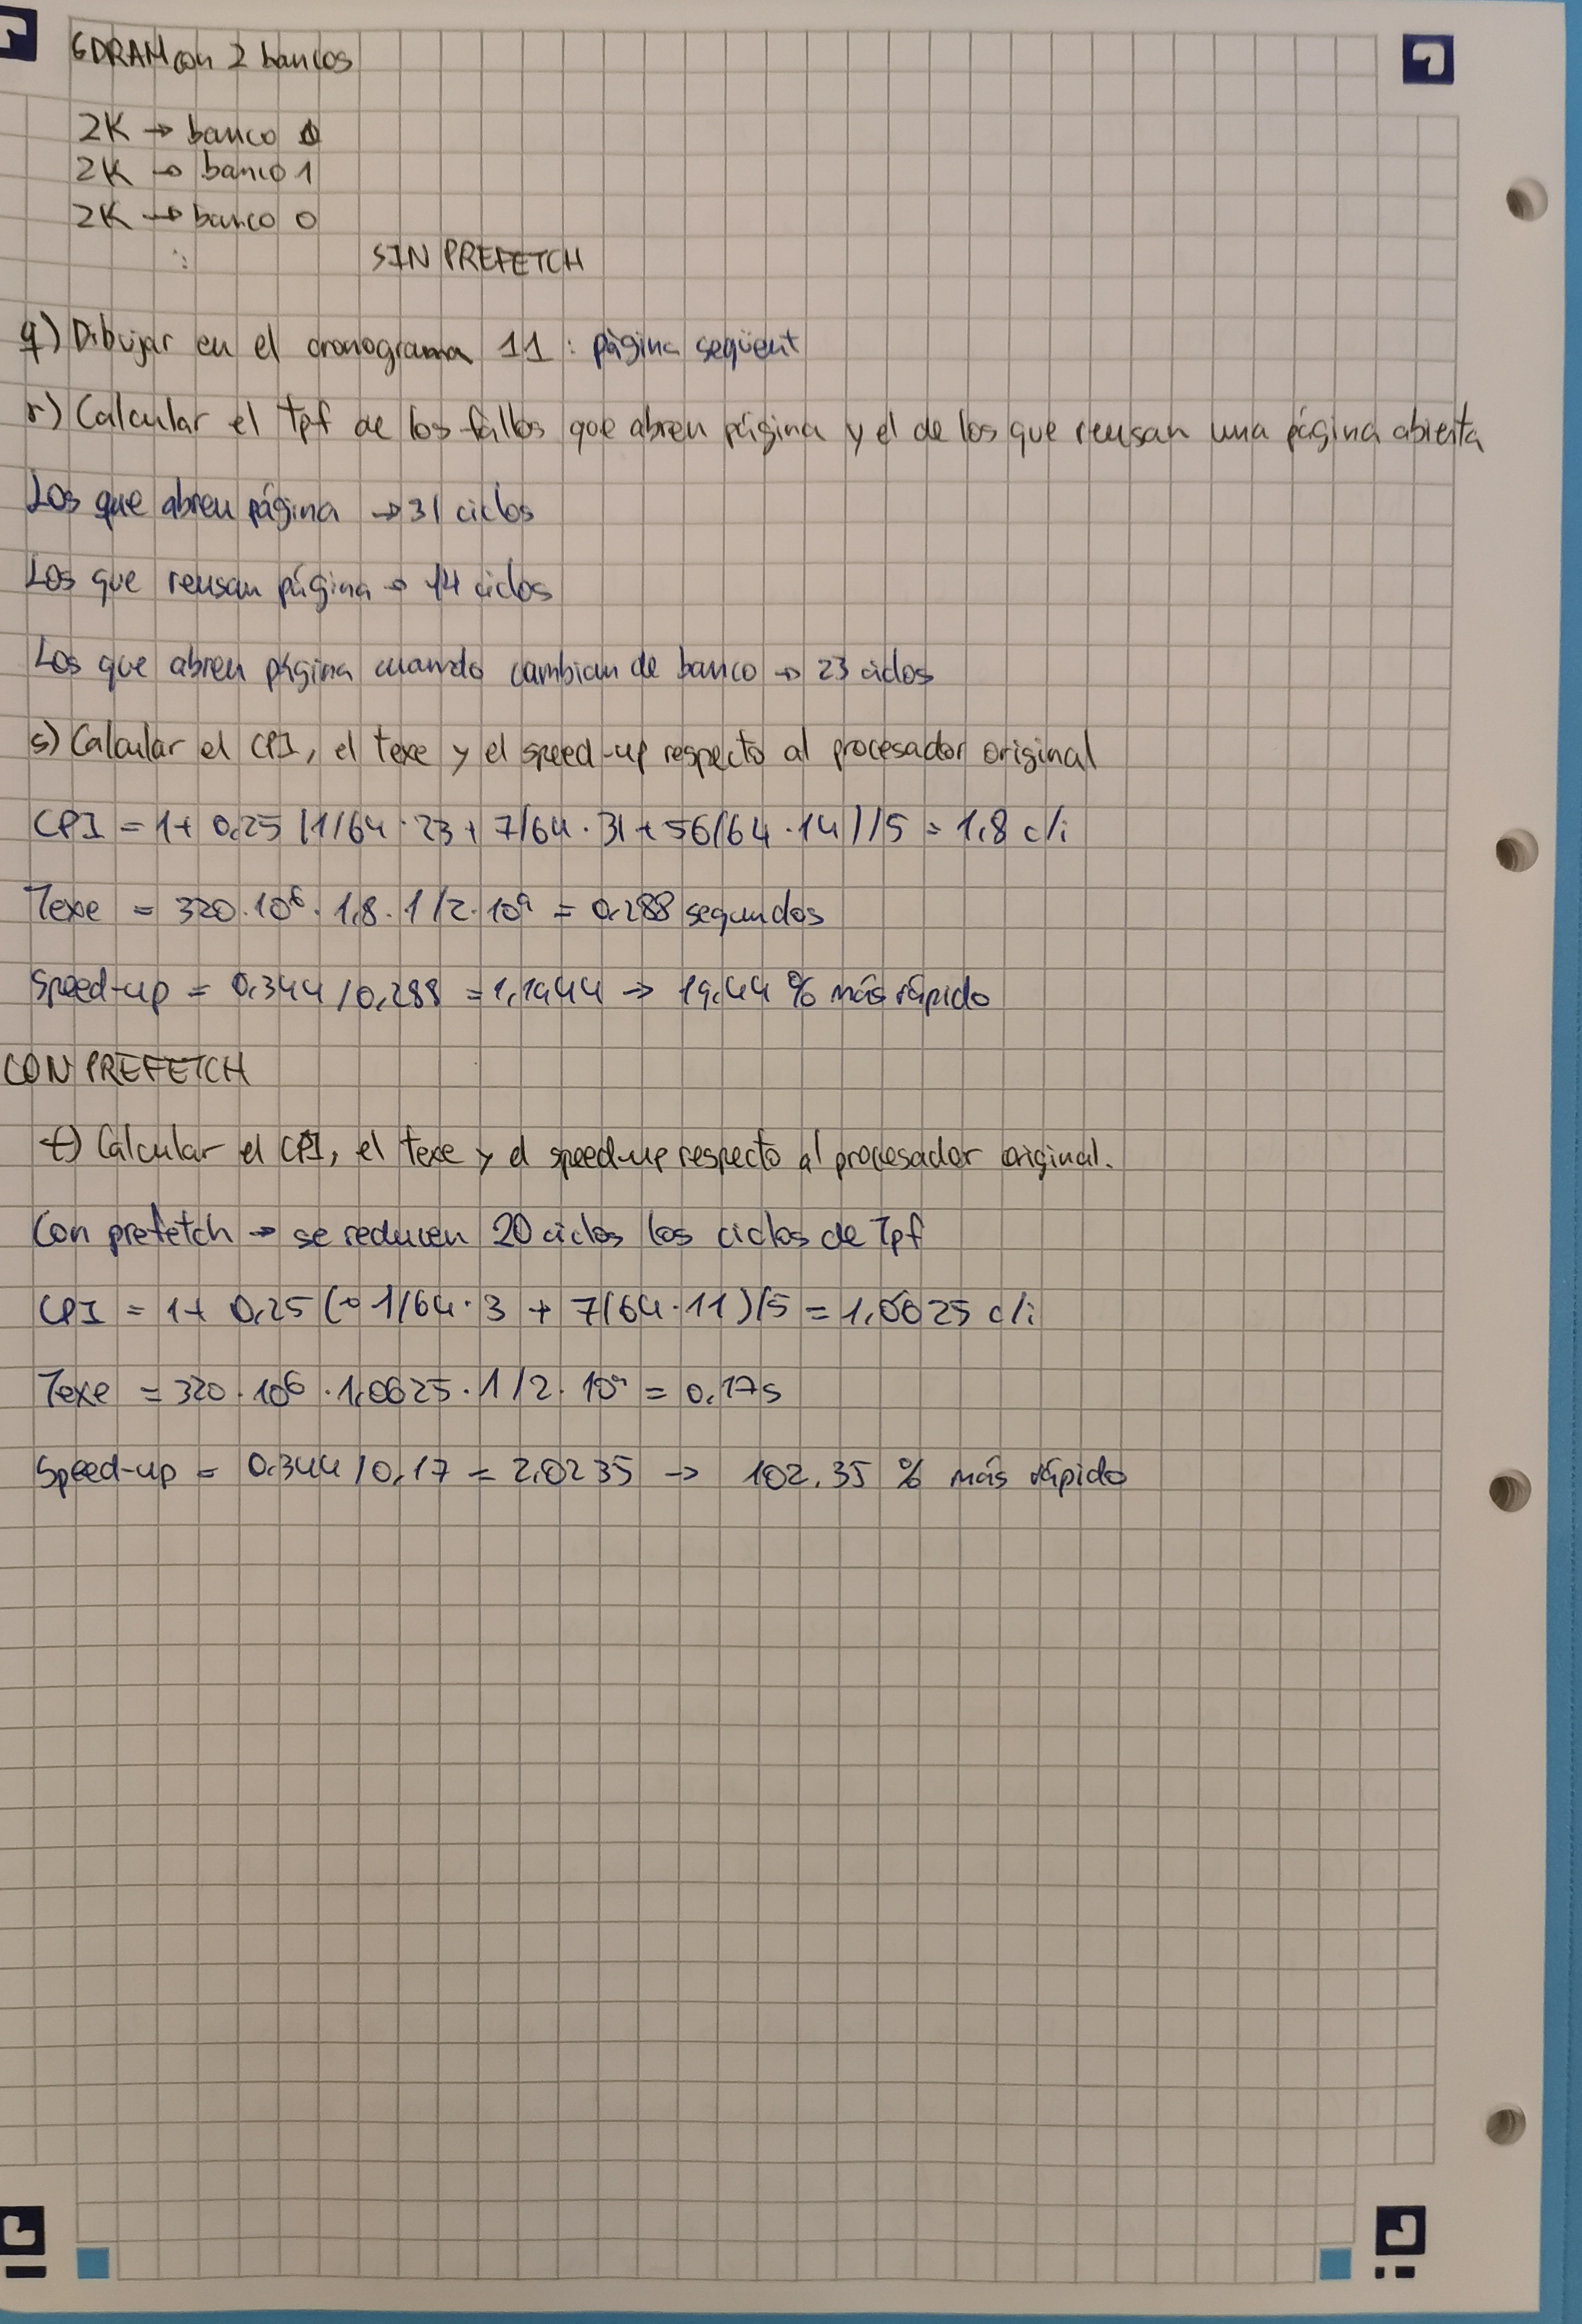 SDRAM con 2 bancos
2K → banco 0
2K → banco 1
2K → banco 0
⋮
SIN PREFETCH
q) Dibujar en el cronograma 11: pàgina següent
r) Calcular el tpf de los fallos que abren página y el de los que reusan una página abierta
Los que abren página → 31 ciclos
Los que reusan página → 14 ciclos
Los que abren página cuando cambian de banco → 23 ciclos
s) Calcular el CPI, el texe y el speed-up respecto al procesador original
CPI = 1+ 0,25 (1/64 · 23 + 7/64 · 31 + 56/64 · 14)/5 = 1,8 c/i
Texe = 320·10⁶ · 1,8 · 1/2·10⁹ = 0,288 segundos
Speed-up = 0,344/0,288 = 1,1944 → 19,44 % más rápido
CON PREFETCH
t) Calcular el CPI, el texe y el speed-up respecto al procesador original.
Con prefetch → se reducen 20 ciclos los ciclos de Tpf
CPI = 1+ 0,25 (1/64·3 + 7/64·11)/5 = 1,0625 c/i
Texe = 320·10⁶ · 1,0625 · 1/2·10⁹ = 0,17s
Speed-up = 0,344/0,17 = 2,0235 → 102,35 % más rápido